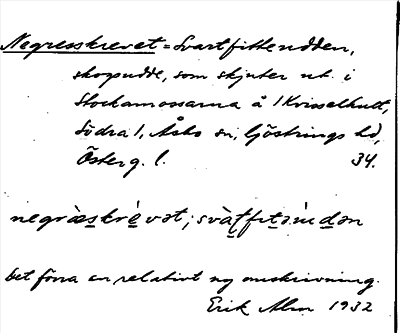 Negresskrevet = Svartfitteudden,
skogsudde, som skjuter ut i
Stockamossarna å 1 Krisselhult,
Södra 1, Åsbo sn, Göstrings hd,
Österg. l. 34.
negræskrèvət; svàṭfiṭəùdən
det förra en relativt ny omskrivning.
Erik Alm 1932